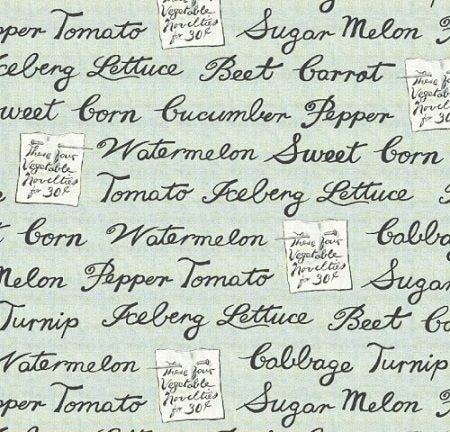 These four
Vegetable
Novelties
for 30¢
pper Tomato Sugar Melon P
ceberg Lettuce Beet Carrot
These four
Vegetab
Noveltie
for 30
weet Corn Cucumber Pepper
These four
Vegetable
Novelties
for 30¢
Watermelon Sweet Corn
Tomato Iceberg Lettuce
t Corn Watermelon
These four
Vegetable
Novelties
for 30¢
Cabbag
Melon Pepper Tomato Sugar
Turnip Iceberg Lettuce Beet Ca
Watermelon
These four
Vegetable
Novelties
for 30¢
Cabbage Turnip
pper Tomato Sugar Melon P